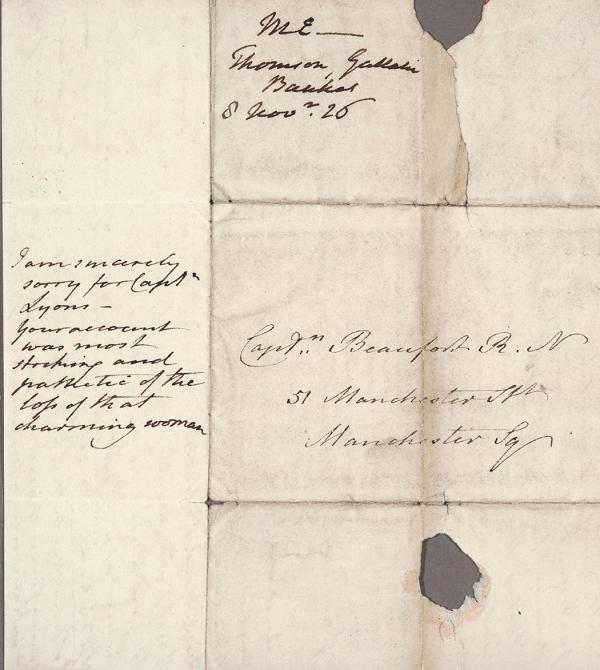 ME —
Thomson, Gallatin
Bankes
8 Novr. 26
I am sincerely
sorry for Captn
Lyons —
Your account
was most
striking and
pathetic of the
loss of that
charming woman
Captn. Beaufort R. N
51 Manchester Stt
Manchester Sq